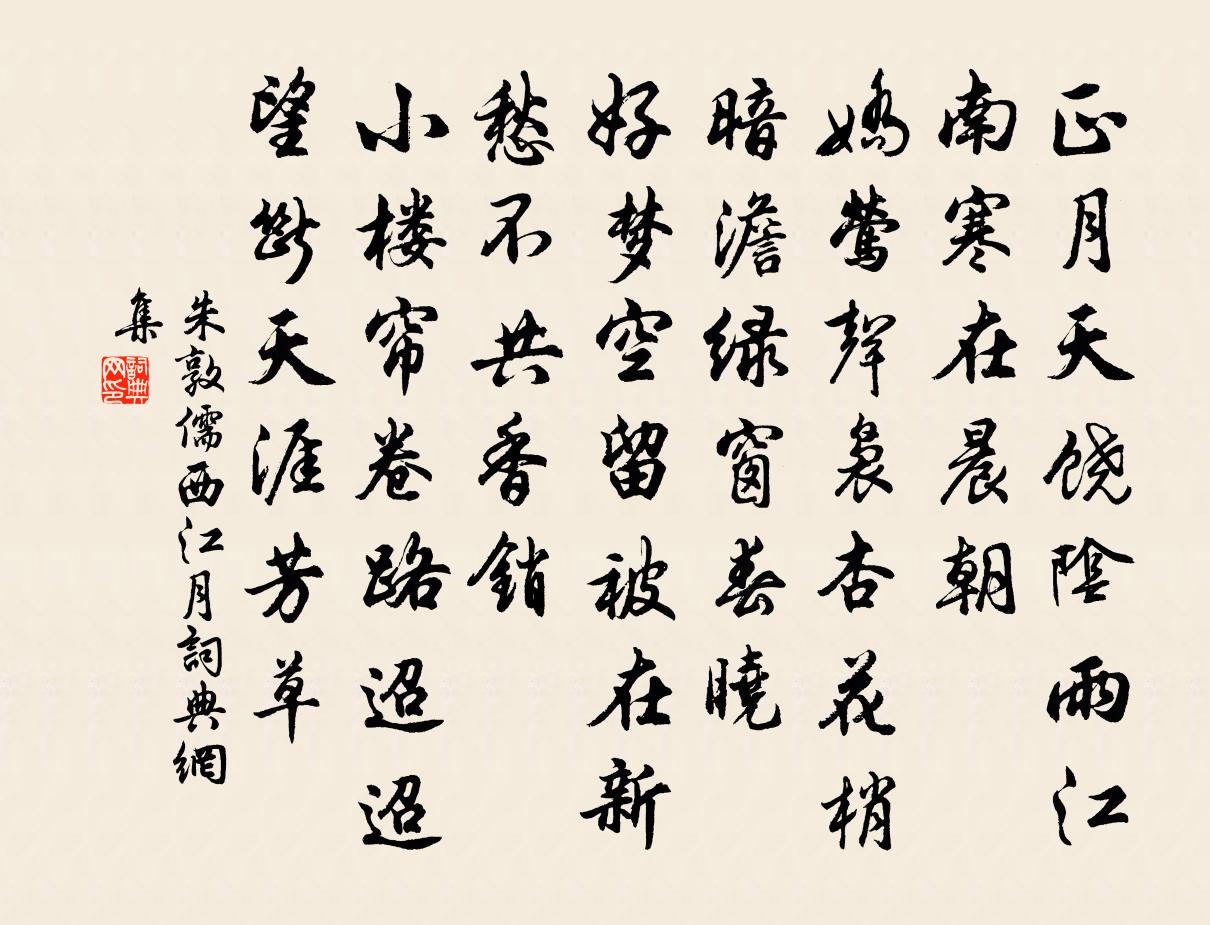 正月天饶陰雨江
南寒在晨朝
嬌莺聲裊杏花梢
暗澹绿窗春曉
好梦空留被在新
愁不共香銷
小楼帘卷路迢迢
望断天涯芳草
朱敦儒西江月詞典網
集
詞典
网印